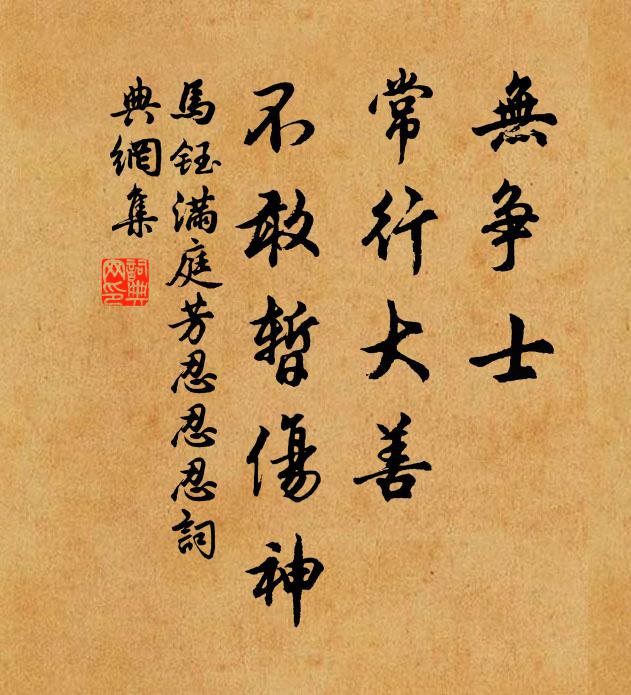 無爭士
常行大善
不敢暫傷神
馬鈺滿庭芳忍忍忍詞
典網集
詞典網印